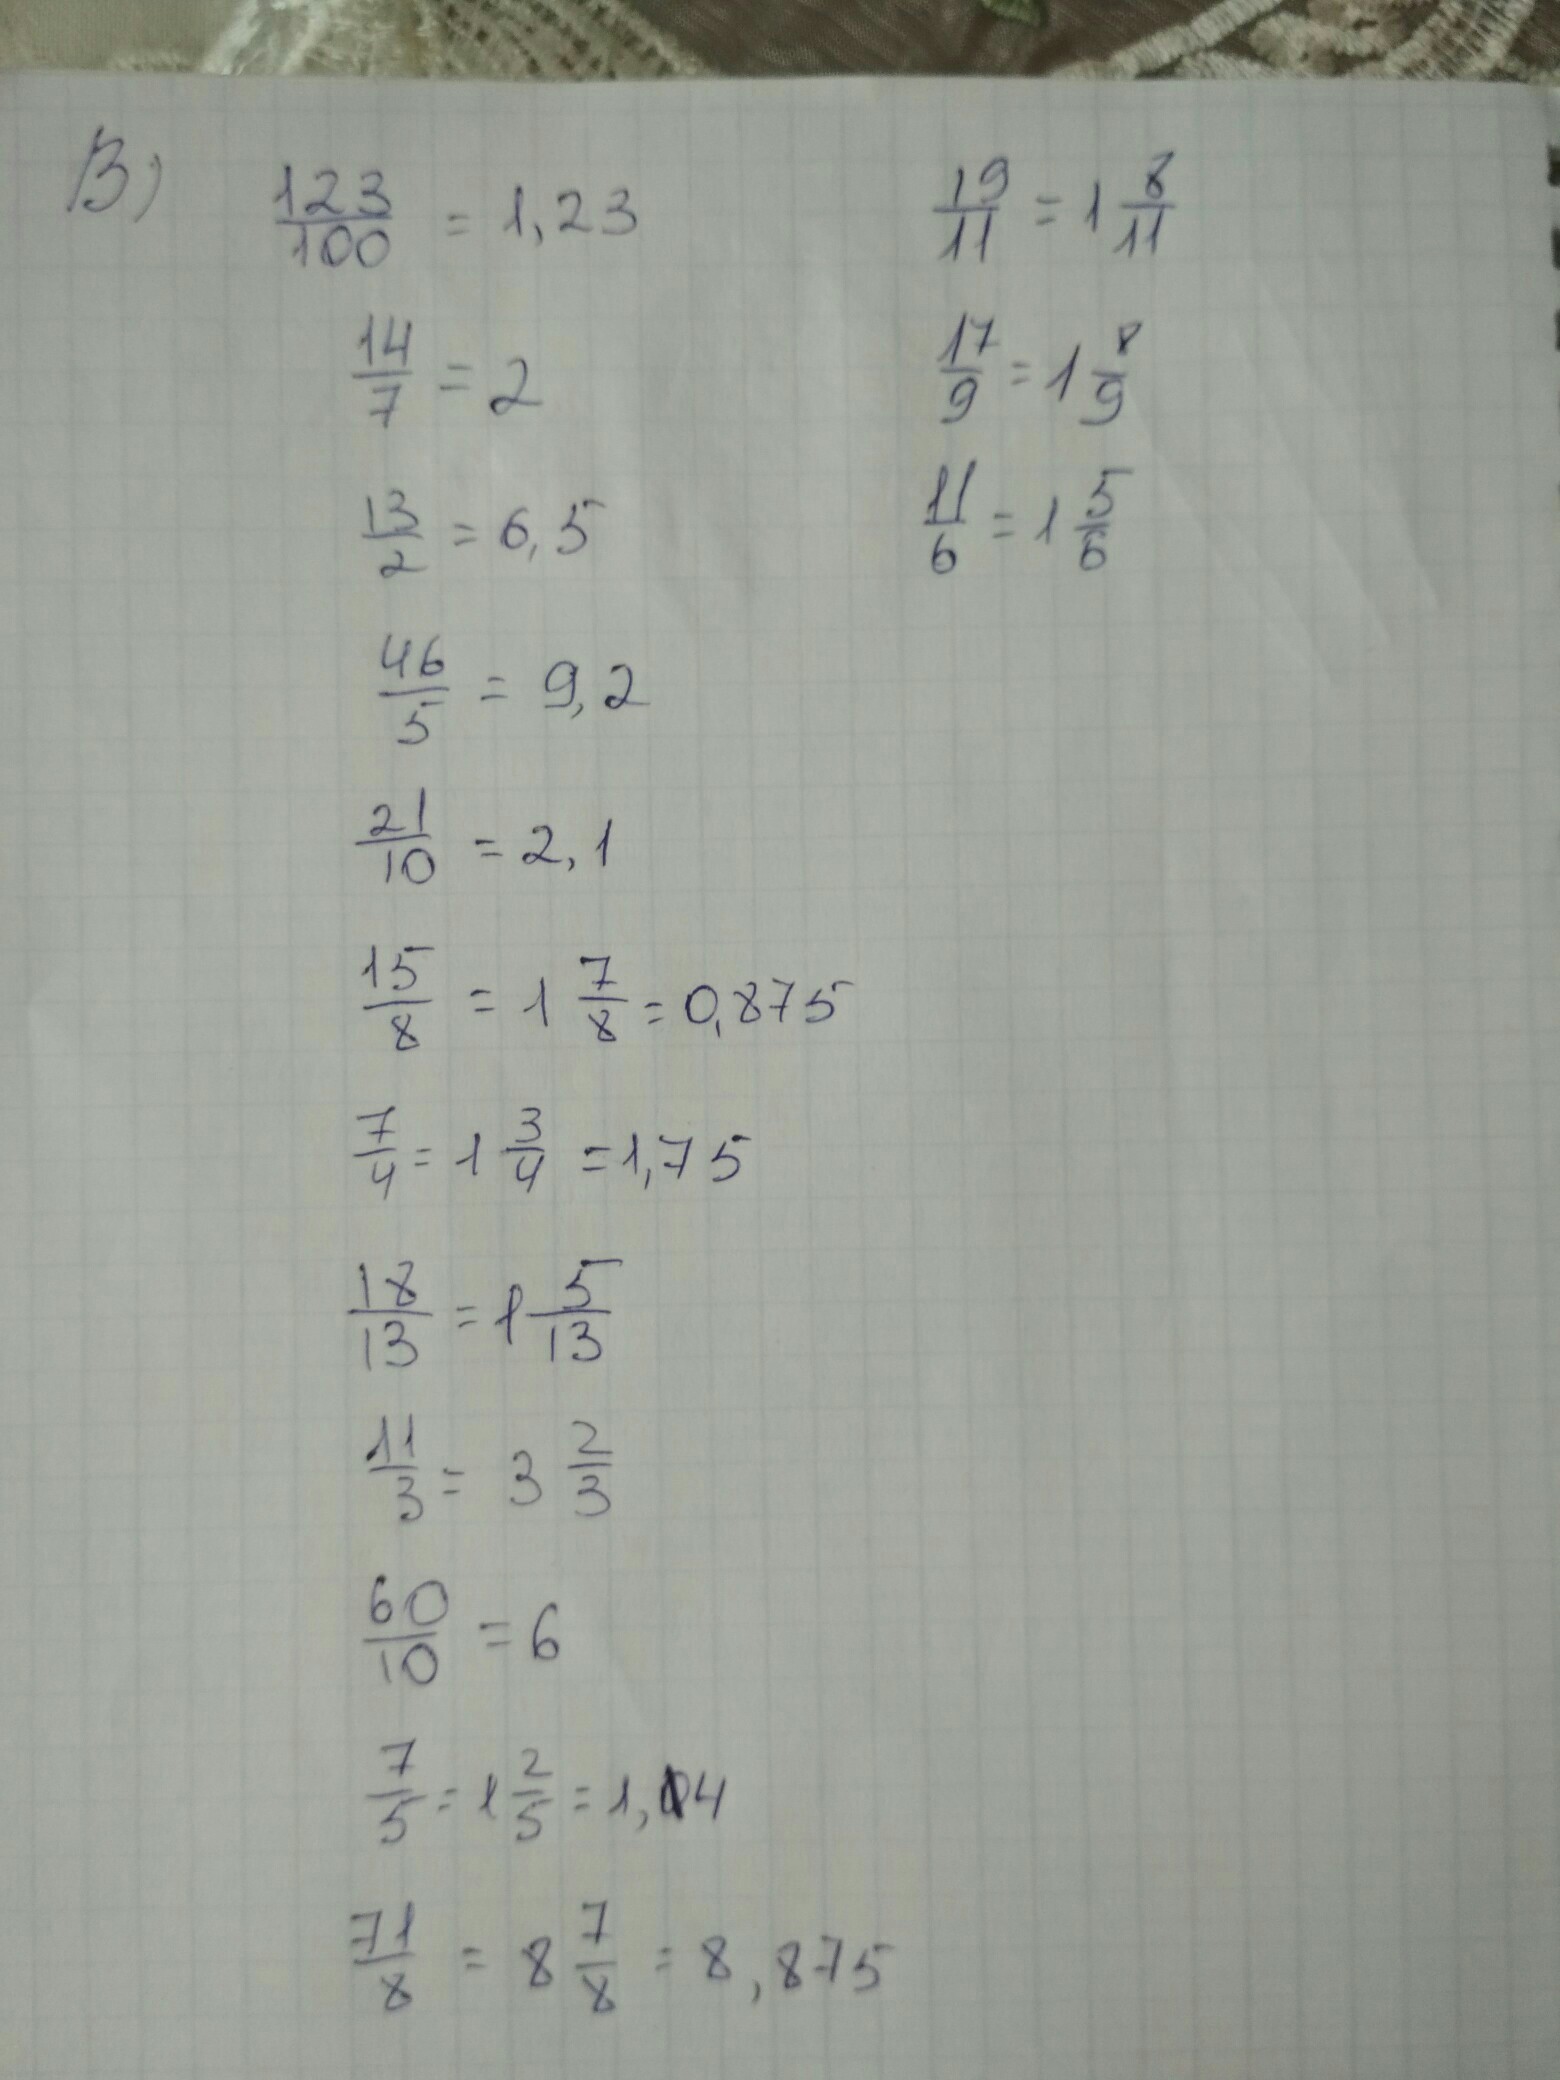 В) 123/100 = 1,23
14/7 = 2
13/2 = 6,5
46/5 = 9,2
21/10 = 2,1
15/8 = 1 7/8 = 0,875
7/4 = 1 3/4 = 1,75
18/13 = 1 5/13
11/3 = 3 2/3
60/10 = 6
7/5 = 1 2/5 = 1,4
71/8 = 8 7/8 = 8,875
19/11 = 1 8/11
17/9 = 1 8/9
11/6 = 1 5/6